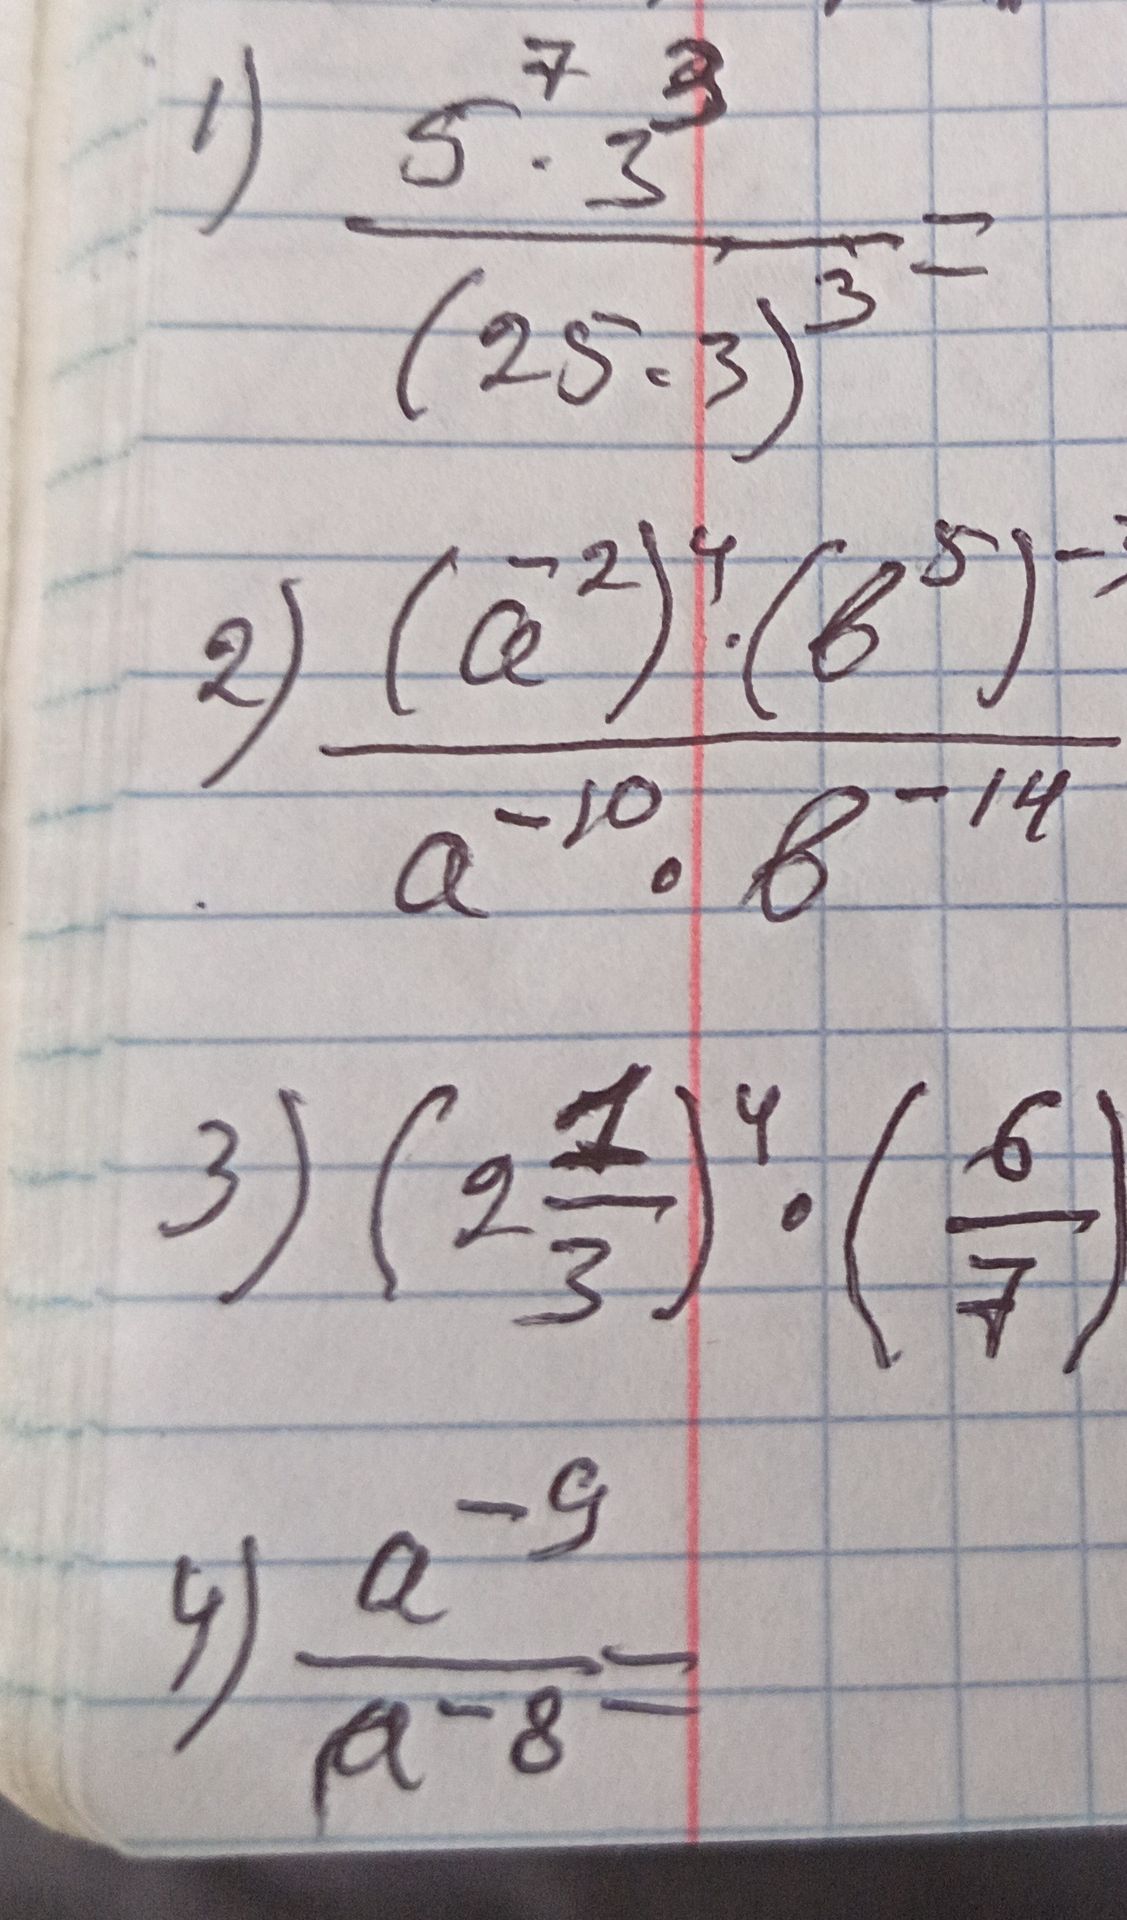 1) 5^7 · 3^3
(25 · 3)^3 =
2) (a^-2)^4 · (b^5)^-3
a^-10 · b^-14
3) (2 1/3)^4 · (6/7)
4) a^-9
a^-8 =